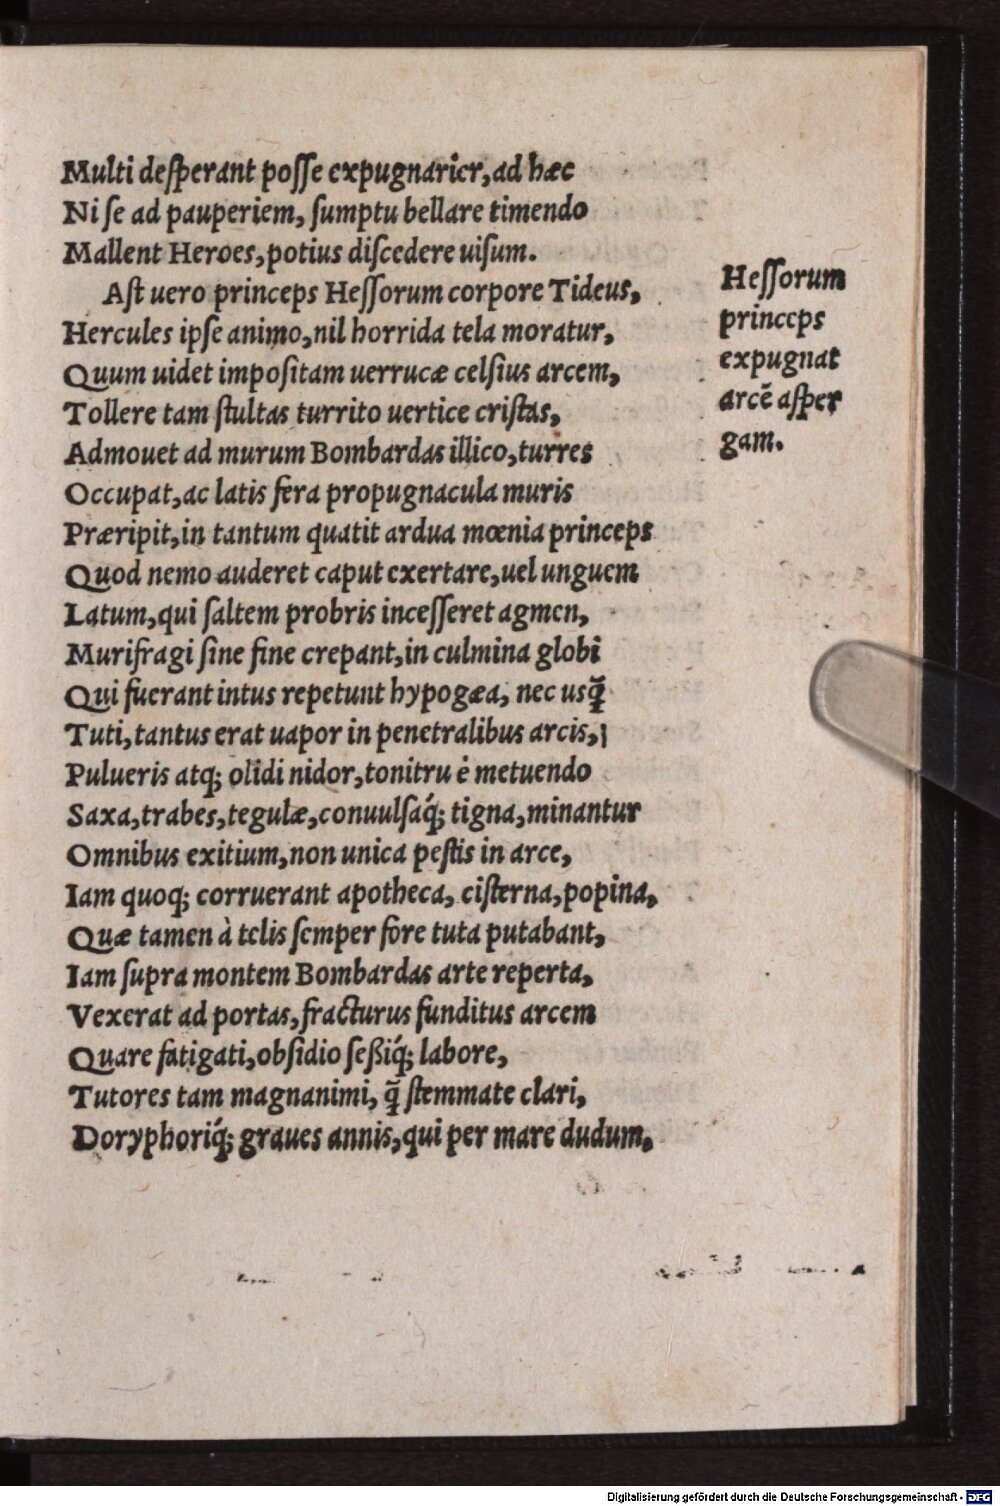 Multi deſperant poſſe expugnarier, ad hæc
Ni ſe ad pauperiem, ſumptu bellare timendo
Mallent Heroes, potius diſcedere uiſum.
Aſt uero princeps Heſſorum corpore Tideus,
Hercules ipſe animo, nil horrida tela moratur,
Quum uidet impoſitam uerrucæ celſius arcem,
Tollere tam ſtultas turrito uertice criſtas,
Admouet ad murum Bombardas illico, turres
Occupat, ac latis fera propugnacula muris
Præripit, in tantum quatit ardua mœnia princeps
Quod nemo auderet caput exertare, uel unguem
Latum, qui ſaltem probris inceſſeret agmen,
Murifragi ſine fine crepant, in culmina globi
Qui fuerant intus repetunt hypogæa, nec usq̄
Tuti, tantus erat uapor in penetralibus arcis,
Pulueris atq; olidi nidor, tonitru è metuendo
Saxa, trabes, tegulæ, conuulſaq́; tigna, minantur
Omnibus exitium, non unica peſtis in arce,
Iam quoq; corruerant apotheca, ciſterna, popina,
Quæ tamen à telis ſemper fore tuta putabant,
Iam ſupra montem Bombardas arte reperta,
Vexerat ad portas, fracturus funditus arcem
Quare fatigati, obſidio ſeßiq́; labore,
Tutores tam magnanimi, q̄ ſtemmate clari,
Doryphoriq́; graues annis, qui per mare dudum,
Heſſorum
princeps
expugnat
arcē aſper
gam.
Digitalisierung gefördert durch die Deutsche Forschungsgemeinschaft - DFG